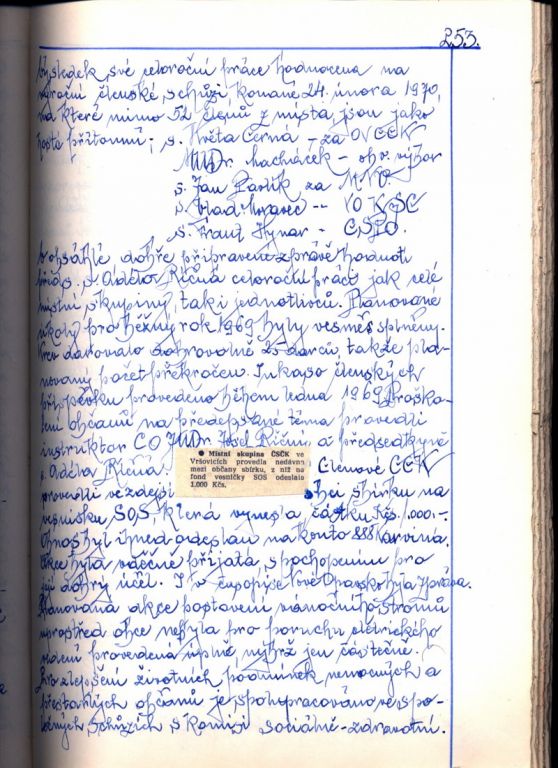 253.
výsledek své celoroční práce hodnocena na
výroční členské schůzi, konané 24. února 1970,
na které mimo 52 členů z místa, jsou jako
hosté přítomni; s. Květa Černá – za OV ČČK
MUDr. Macháček – obv. výbor
s. Jan Pavlík za MNV.
s. Vlad. Moravec -- VO KSČ
s. Frant Hynar – ČSPO.
V obsáhle dobře připravené zprávě hodnotí
předs. s. Adéla Říčná celoroční práci jak celé
místní skupiny, tak i jednotlivců. Plánované
úkoly pro běžný rok 1969 byly vesměs splněny.
Krev darovalo dobrovolně 25 dárců, takže plá-
novaný počet překročen. Inkaso členských
příspěvků provedeno během ledna 1969. Proško-
lení občanů na předepsané téma provedli
instruktor CO JUDr. Josef Říčný a předsedkyně
s. Adéla Říčná. Členové ČČK
● Místní skupina ČSČK ve
Vršovicích provedla nedávno
mezi občany sbírku, z níž na
fond vesničky SOS odeslala
1.000 Kčs.
provedli ve zdejší obci sbírku na
vesničku SOS, která vynesla částku Kčs 1.000.-.
Obnos byl ihned odeslán na konto 888 Karviná.
Akce byla vděčně přijata, s pochopením pro
její dobrý účel. I v časopise Nové Opavsko byla zpráva.
Plánovaná akce postavení vánočního stromu
uprostřed obce nebyla pro poruchu elektrického
vedení provedena úplně, nýbrž jen částečně.
Pro zlepšení životních podmínek nemocných a
přestárlých občanů je spolupracováno ve spo-
lečných schůzích s komisí sociálně-zdravotní.